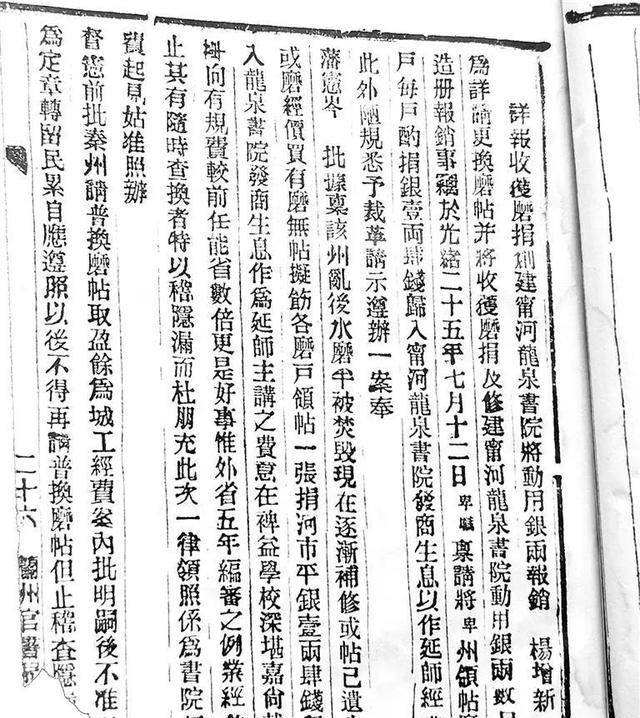 詳報收獲磨捐創建甯河龍泉書院將動用銀兩報銷 楊增新
為詳請更換磨帖并將收獲磨捐及修建甯河龍泉書院動用銀兩數
造册報銷事竊於光緒二十五年七月十二日卑職稟請將卑州領帖
戶每戶酌捐銀壹兩肆錢歸入甯河龍泉書院發商生息以作延師經
此外陋規悉予裁革請示遵辦一案奉
藩憲岑 批據稟該州亂後水磨半被焚毀現在逐漸補修或帖已遺
或磨經價買有磨無帖擬飭各磨戶領帖一張捐河市平銀壹兩肆錢
入龍泉書院發商生息作為延師主講之費意在裨益學校深堪嘉尚
向有規費較前任能省數倍更是好事惟外省五年編審之例業經
止其有隨時查換者特以稽隱漏而杜朋充此次一律領照係為書院
費起見姑准照辦
督憲前批秦州請普換磨帖取盈餘為城工經費案內批明嗣後不准
為定章轉留民累自應遵照以後不得再請普換磨帖但止稽查隱
二十六 蘭州官書